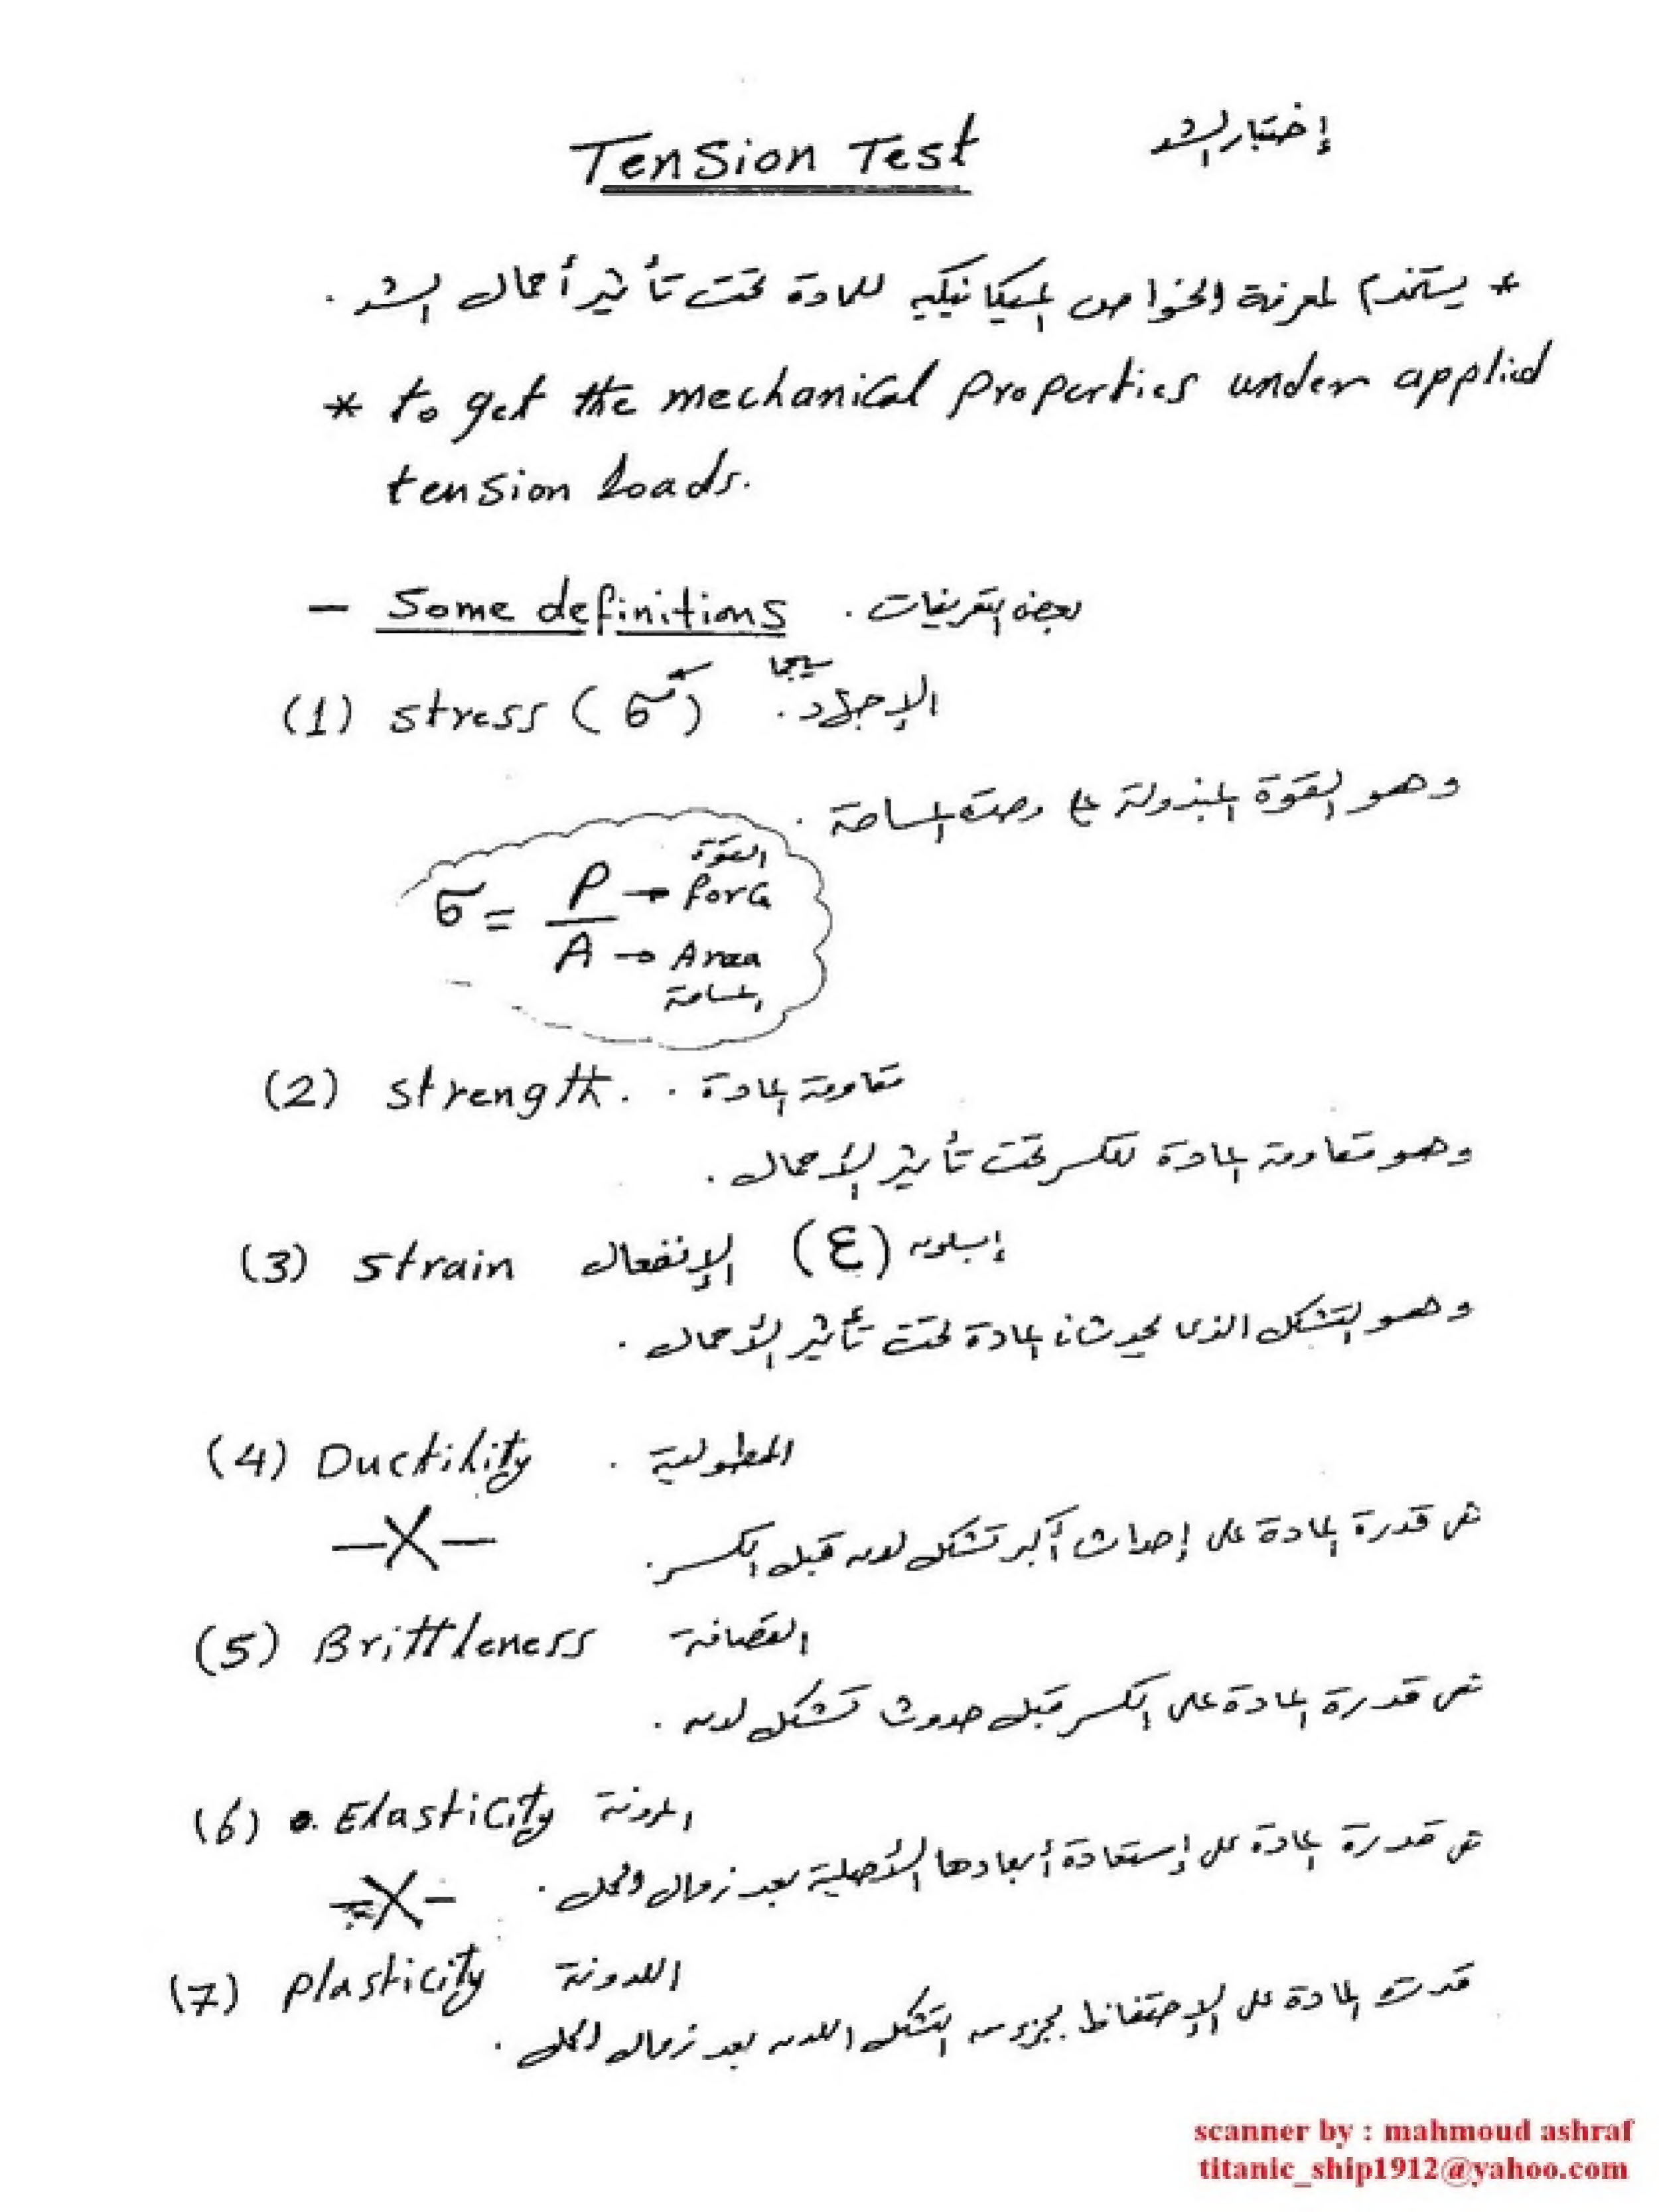 Tension Test إختبار الشد
* يستخدم لمعرفة الخواص الميكانيكيه للمادة تحت تأثير أحمال الشد .
* to get the mechanical properties under applied
tension loads.
- Some definitions . بعض التعريفات
سيجما
(1) stress (σ) . الإجهاد
وهو القوة المبذولة على وحدة المساحة .
القوة
σ = P → force
A → Area
المساحة
(2) strength . . مقاومة المادة
وهو مقاومة المادة للكسر تحت تأثير الأحمال .
(3) strain الإنفعال (ε) إبسلون
وهو التشكل الذى يحدث فى المادة تحت تأثير الأحمال .
(4) Ductility . المطولية
هى قدرة المادة على إحداث أكبر تشكل لدن قبل الكسر .
-X-
(5) Brittleness القصافة
هى قدرة المادة على الكسر قبل حدوث تشكل لدن .
(6) Elasticity المرونة
هى قدرة المادة على إستعادة أبعادها الأصلية بعد زوال الحمل .
-X-
(7) plasticity اللدونة
قدرت المادة على الإحتفاظ بجزء من التشكل اللدن بعد زوال الحمل .
scanner by : mahmoud ashraf
titanic_ship1912@yahoo.com